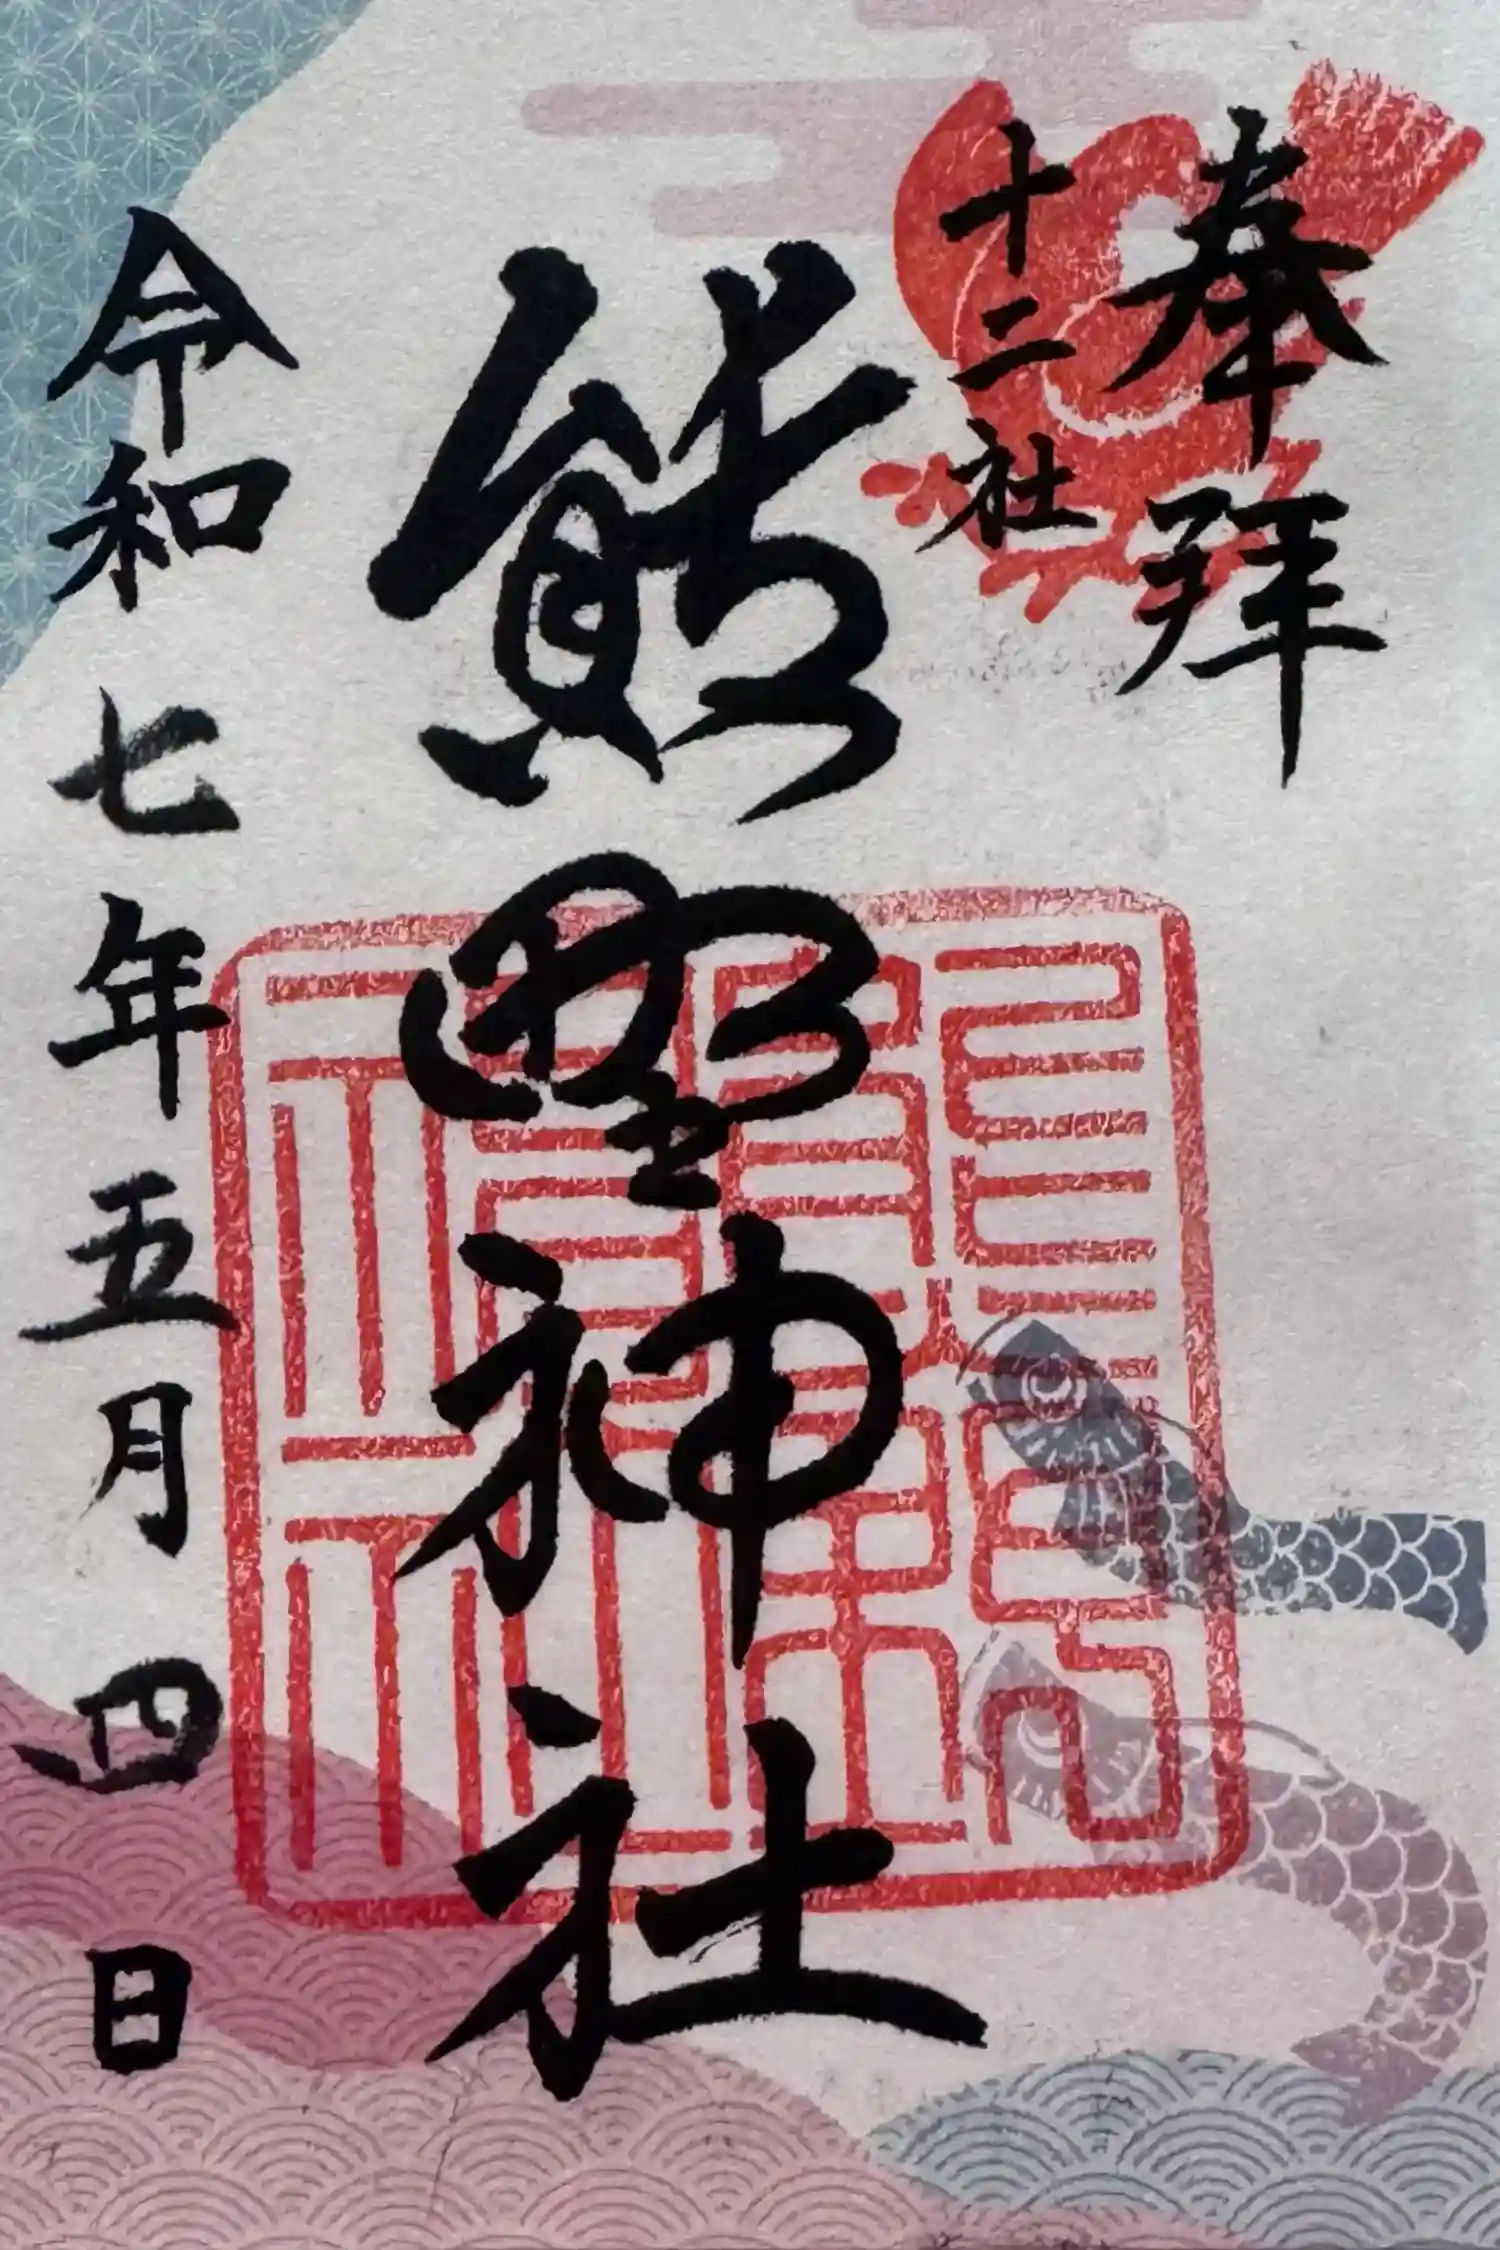 奉拜
十二社
熊野神社
令和七年五月四日